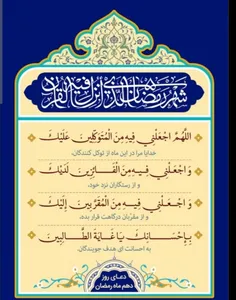 شَهْرُ رَمَضَانَ الَّذِي أُنْزِلَ فِيهِ الْقُرْآنُ
اللّهُمَّ اجْعَلْنِي فِيهِ مِنَ الْمُتَوَكِّلِينَ عَلَيْكَ
خدایا مرا در این ماه از توکل کنندگان،
وَ اجْعَلْنِي فِيهِ مِنَ الْفَائِزِينَ لَدَيْكَ
و از رستگاران نزد خود،
وَ اجْعَلْنِي فِيهِ مِنَ الْمُقَرَّبِينَ إِلَيْكَ
و از مقربان درگاهت قرار بده،
بِإِحْسَانِكَ يَا غَايَةَ الطَّالِبِينَ
به احسانت ای هدف جویندگان.
دعـای روز
دهم ماه رمضان